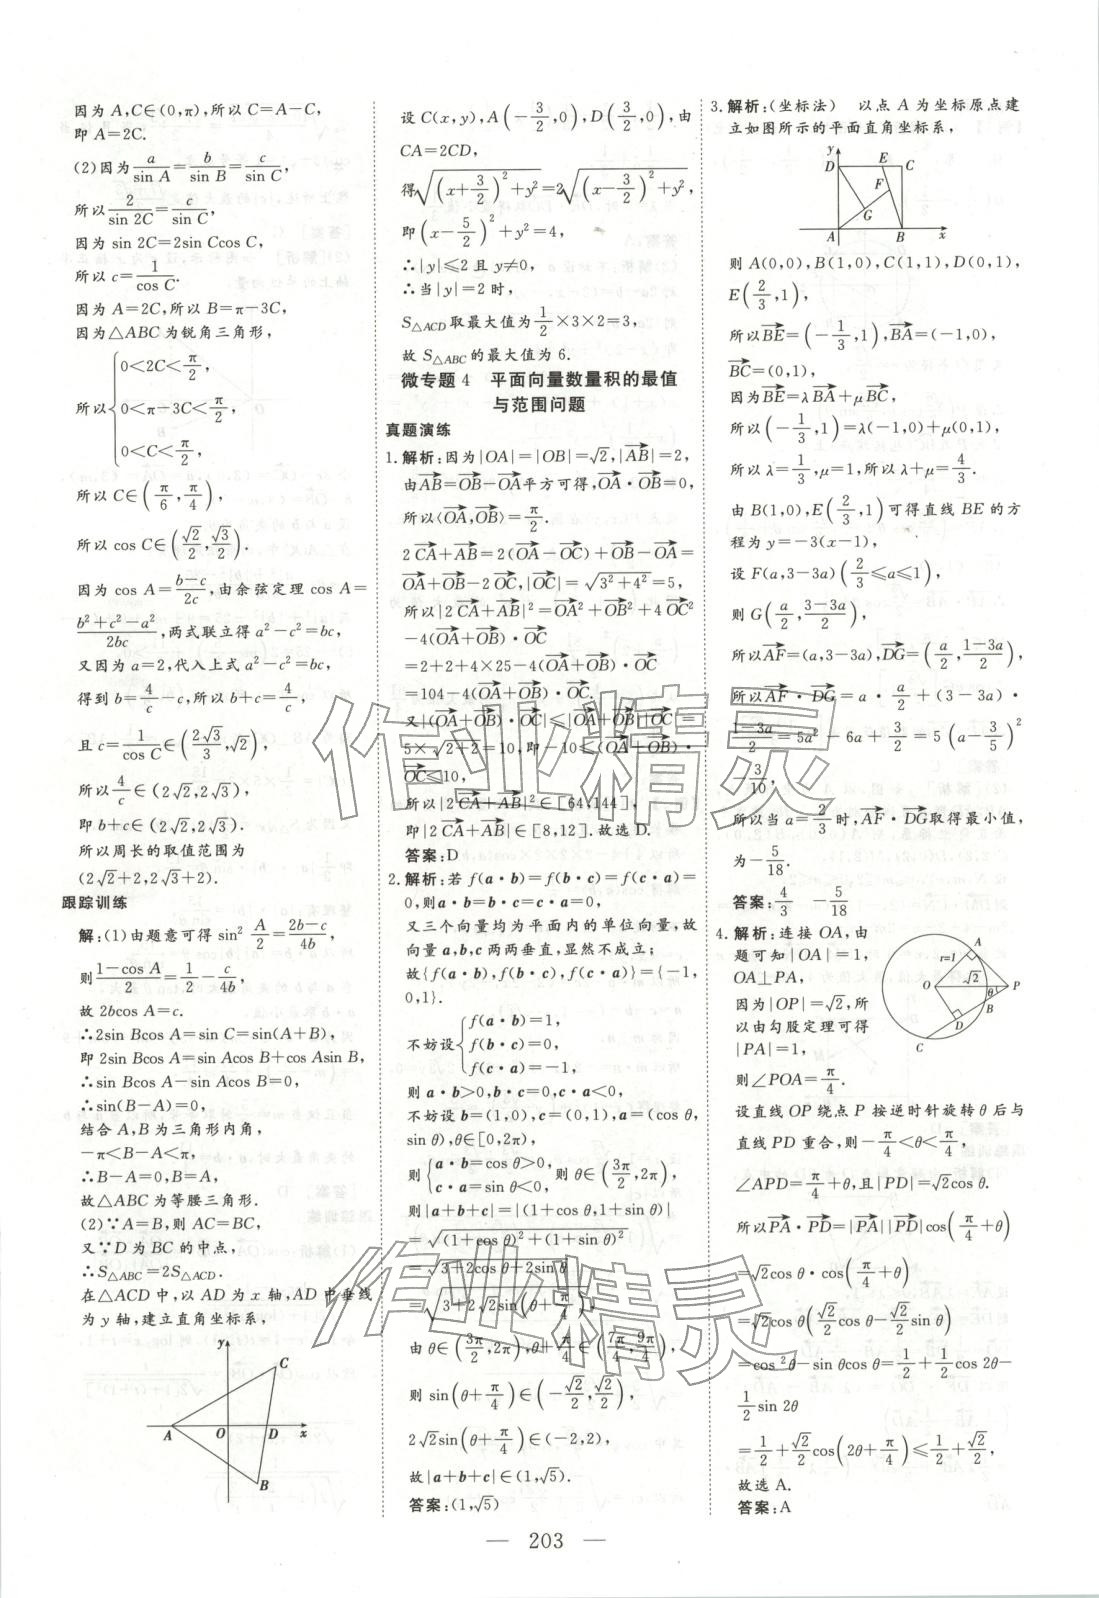 因为 A,C∈(0,π),所以 C=A-C,
即 A=2C.
(2)因为 a/sin A = b/sin B = c/sin C,
所以 2/sin 2C = c/sin C,
因为 sin 2C=2sin Ccos C,
所以 c=1/cos C.
因为 A=2C,所以 B=π-3C,
因为△ABC 为锐角三角形,
所以{0<2C<π/2,
0<π-3C<π/2,
0<C<π/2,
所以 C∈(π/6,π/4),
所以 cos C∈(√2/2,√3/2).
因为 cos A=(b-c)/2c,由余弦定理 cos A=
(b²+c²-a²)/2bc,两式联立得 a²-c²=bc,
又因为 a=2,代入上式 a²-c²=bc,
得到 b=4/c-c,所以 b+c=4/c,
且 c=1/cos C∈(2√3/3,√2),
所以 4/c∈(2√2,2√3),
即 b+c∈(2√2,2√3).
所以周长的取值范围为
(2√2+2,2√3+2).
跟踪训练
解:(1)由题意可得 sin² A/2=(2b-c)/4b,
则(1-cos A)/2=1/2-c/4b,
故 2bcos A=c.
∴2sin Bcos A=sin C=sin(A+B),
即 2sin Bcos A=sin Acos B+cos Asin B,
∴sin Bcos A-sin Acos B=0,
∴sin(B-A)=0,
结合 A,B 为三角形内角,
-π<B-A<π,
∴B-A=0,B=A,
故△ABC 为等腰三角形.
(2)∵A=B,则 AC=BC,
又∵D 为 BC 的中点,
∴S△ABC=2S△ACD.
在△ACD 中,以 AD 为 x 轴,AD 中垂线
为 y 轴,建立直角坐标系,
y
C
A
O
D
x
B
设 C(x,y),A(-3/2,0),D(3/2,0),由
CA=2CD,
得√((x+3/2)²+y²)=2√((x-3/2)²+y²),
即(x-5/2)²+y²=4,
∴|y|≤2 且 y≠0,
∴当|y|=2 时,
S△ACD取最大值为1/2×3×2=3,
故 S△ABC的最大值为 6.
微专题 4 平面向量数量积的最值
与范围问题
真题演练
1.解析:因为|OA|=|OB|=√2,|AB→|=2,
由AB→=OB→-OA→平方可得,OA→·OB→=0,
所以⟨OA→,OB→⟩=π/2.
2CA→+AB→=2(OA→-OC→)+OB→-OA→=
OA→+OB→-2OC→,|OC→|=√(3²+4²)=5,
所以|2CA→+AB→|²=OA→²+OB→²+4OC→²
-4(OA→+OB→)·OC→
=2+2+4×25-4(OA→+OB→)·OC→
=104-4(OA→+OB→)·OC→.
又|(OA→+OB→)·OC→|≤|OA→+OB→||OC→|=
5×√(2+2)=10,即-10≤(OA→+OB→)·
OC→≤10,
所以|2CA→+AB→|²∈[64,144],
即|2CA→+AB→|∈[8,12].故选 D.
答案:D
2.解析:若 f(a·b)=f(b·c)=f(c·a)=
0,则a·b=b·c=c·a=0,
又三个向量均为平面内的单位向量,故
向量 a,b,c 两两垂直,显然不成立;
故{f(a·b),f(b·c),f(c·a)}={-1,
0,1}.
不妨设{f(a·b)=1,
f(b·c)=0,
f(c·a)=-1,
则 a·b>0,b·c=0,c·a<0,
不妨设 b=(1,0),c=(0,1),a=(cos θ,
sin θ),θ∈[0,2π),
则{a·b=cos θ>0,
c·a=sin θ<0, 则 θ∈(3π/2,2π),
则|a+b+c|=|(1+cos θ,1+sin θ)|
=√((1+cos θ)²+(1+sin θ)²)
=√(3+2cos θ+2sin θ)
=√(3+2√2sin(θ+π/4)).
由 θ∈(3π/2,2π),θ+π/4∈(7π/4,9π/4),
则 sin(θ+π/4)∈(-√2/2,√2/2),
2√2sin(θ+π/4)∈(-2,2),
故|a+b+c|∈(1,√5).
答案:(1,√5)
3.解析:(坐标法) 以点 A 为坐标原点建
立如图所示的平面直角坐标系,
y
D E C
F
G
A B x
则 A(0,0),B(1,0),C(1,1),D(0,1),
E(2/3,1),
所以BE→=(-1/3,1),BA→=(-1,0),
BC→=(0,1),
因为BE→=λBA→+μBC→,
所以(-1/3,1)=λ(-1,0)+μ(0,1),
所以 λ=1/3,μ=1,所以 λ+μ=4/3.
由 B(1,0),E(2/3,1)可得直线 BE 的方
程为 y=-3(x-1),
设 F(a,3-3a)(2/3≤a≤1),
则 G(a/2,(3-3a)/2),
所以AF→=(a,3-3a),DG→=(a/2,(1-3a)/2),
所以AF→·DG→=a·a/2+(3-3a)·
(1-3a)/2=5a²-6a+3/2=5(a-3/5)²
-3/10,
所以当 a=2/3时,AF→·DG→取得最小值,
为-5/18.
答案:4/3 -5/18
4.解析:连接 OA,由
题可知|OA|=1,
OA⊥PA,
因为|OP|=√2,所
以由勾股定理可得
|PA|=1,
则∠POA=π/4.
A
r=1
√2
O
θ
P
B
D
C
设直线 OP 绕点 P 按逆时针旋转 θ 后与
直线 PD 重合,则-π/4<θ<π/4,
∠APD=π/4+θ,且|PD|=√2cos θ.
所以PA→·PD→=|PA→||PD→|cos(π/4+θ)
=√2cos θ·cos(π/4+θ)
=√2cos θ(√2/2cos θ-√2/2sin θ)
=cos²θ-sin θcos θ=1/2+1/2cos 2θ-
1/2sin 2θ
=1/2+√2/2cos(2θ+π/4)≤1/2+√2/2,
故选 A.
答案:A
作业精灵
作业精灵
— 203 —